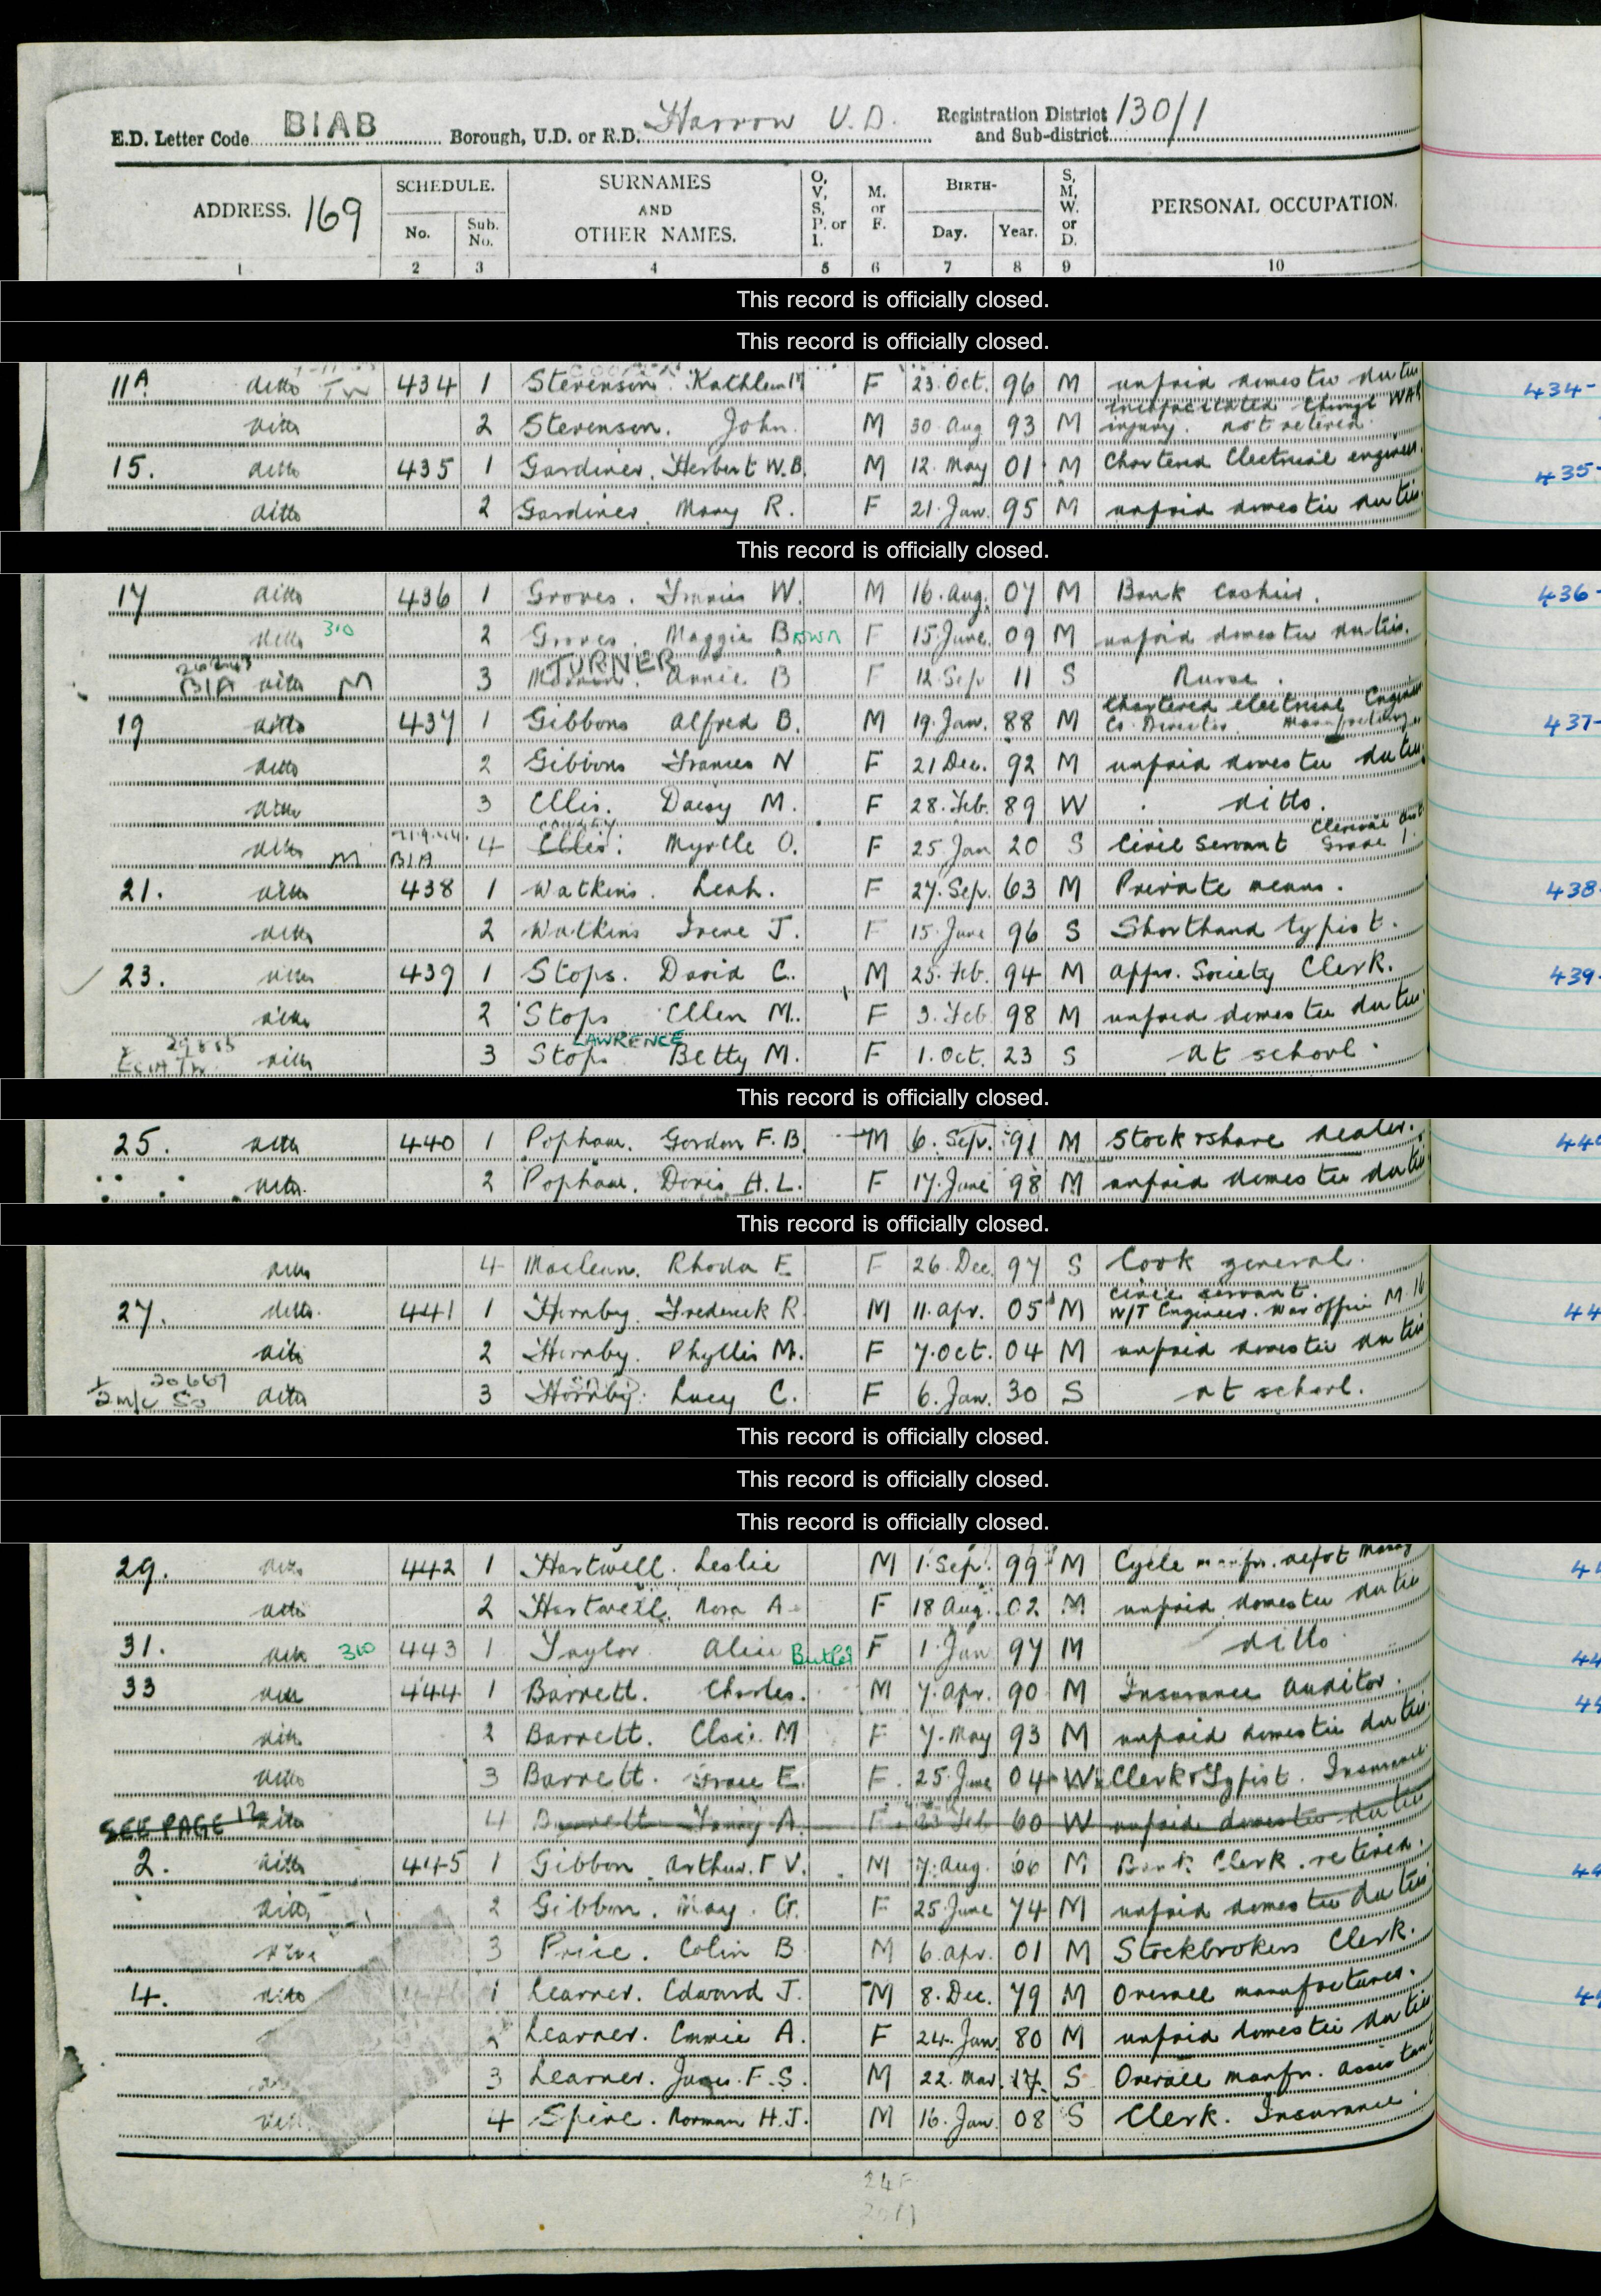 E.D. Letter Code BIAB Borough, U.D. or R.D. Harrow U.D. Registration District and Sub-district 130/1
ADDRESS. 169 SCHEDULE. No. Sub. No. SURNAMES AND OTHER NAMES. O, V, S, P. or I. M. or F. BIRTH- Day. Year. S, M, W. or D. PERSONAL OCCUPATION.
1 2 3 4 5 6 7 8 9 10
This record is officially closed.
This record is officially closed.
11A ditto 434 1 Stevenson. Kathleen M F 23 Oct. 96 M unpaid domestic duties 434-
ditto 2 Stevenson. John. M 30 Aug 93 M incapacitated through WAR injury. not retired.
15. ditto 435 1 Gardiner. Herbert W.B. M 12 May 01 M Chartered Electrical engineer. 435-
ditto 2 Gardiner. Mary R. F 21 Jan. 95 M unpaid domestic duties.
This record is officially closed.
17 ditto 436 1 Groves. Francis W. M 16 Aug. 07 M Bank Cashier. 436-
ditto 310 2 Groves. Maggie B F 15 June. 09 M unpaid domestic duties.
BIA ditto M 3 TURNER Annie B F 12 Sep 11 S Nurse.
19 ditto 437 1 Gibbons Alfred B. M 19 Jan. 88 M Chartered electrical Engineer Co. Director. 437-
ditto 2 Gibbons Frances N F 21 Dec. 92 M unpaid domestic duties.
ditto 3 Ellis. Daisy M. F 28. Feb. 89 W ditto.
ditto M BIA 4 Ellis. Myrtle O. F 25 Jan 20 S Civil Servant Clerical Grade 1
21. ditto 438 1 Watkins. Leah. F 27. Sep. 63 M Private means. 438-
ditto 2 Watkins Irene J. F 15 June 96 S Shorthand typist.
23. ditto 439 1 Stops. David C. M 25. Feb. 94 M appr. Society Clerk. 439-
ditto 2 Stops Ellen M. F 3. Feb 98 M unpaid domestic duties.
ditto 3 Stops LAWRENCE Betty M. F 1. Oct. 23 S at school.
This record is officially closed.
25. ditto 440 1 Popham. Gordon F. B. M 6. Sep. 91 M Stock & share dealer. 44
ditto 2 Popham. Doris A. L. F 17. June 98 M unpaid domestic duties
This record is officially closed.
ditto 4 Maclean. Rhoda E F 26. Dec. 97 S Cook general.
27. ditto. 441 1 Hornby. Frederick R. M 11. Apr. 05 M Civil servant. W/T Engineer. War office 44
ditto 2 Hornby. Phyllis M. F 7. Oct. 04 M unpaid domestic duties
ditto 3 Hornby. Lucy C. F 6. Jan. 30 S at school.
This record is officially closed.
This record is officially closed.
This record is officially closed.
29. ditto 442 1 Hartwell. Leslie M 1. Sep. 99 M Cycle manfr. depot
ditto 2 Hartwell. Nora A. F 18 Aug. 02 M unpaid domestic duties
31. ditto 310 443 1 Taylor Alice Butler F 1 Jan 97 M ditto 44
33 ditto 444 1 Barrett. Charles. M 7. Apr. 90 M Insurance Auditor. 44
ditto 2 Barrett. Elsie. M F 7. May 93 M unpaid domestic duties
ditto 3 Barrett. Grace E. F. 25 June 04 W Clerk & Typist. Insurance
SEE PAGE ditto 4 Barrett Fanny A. F 23 Feb 60 W unpaid domestic duties
2. ditto 445 1 Gibbon. Arthur. F V. M 7. Aug. 66 M Bank Clerk. retired. 44
ditto 2 Gibbon. May. G. F 25 June 74 M unpaid domestic duties
ditto 3 Price. Colin B M 6. Apr. 01 M Stockbrokers Clerk.
4. ditto 1 Learner. Edward J. M 8. Dec. 79 M Overall manufacturer. 44
2 Learner. Emmie A. F 24. Jan. 80 M unpaid domestic duties
3 Learner. James. F. S. M 22. Mar. 17. S Overall manfr. assistant
ditto 4 Spire. Norman H. J. M 16. Jan. 08 S Clerk. Insurance
24 F
20 M